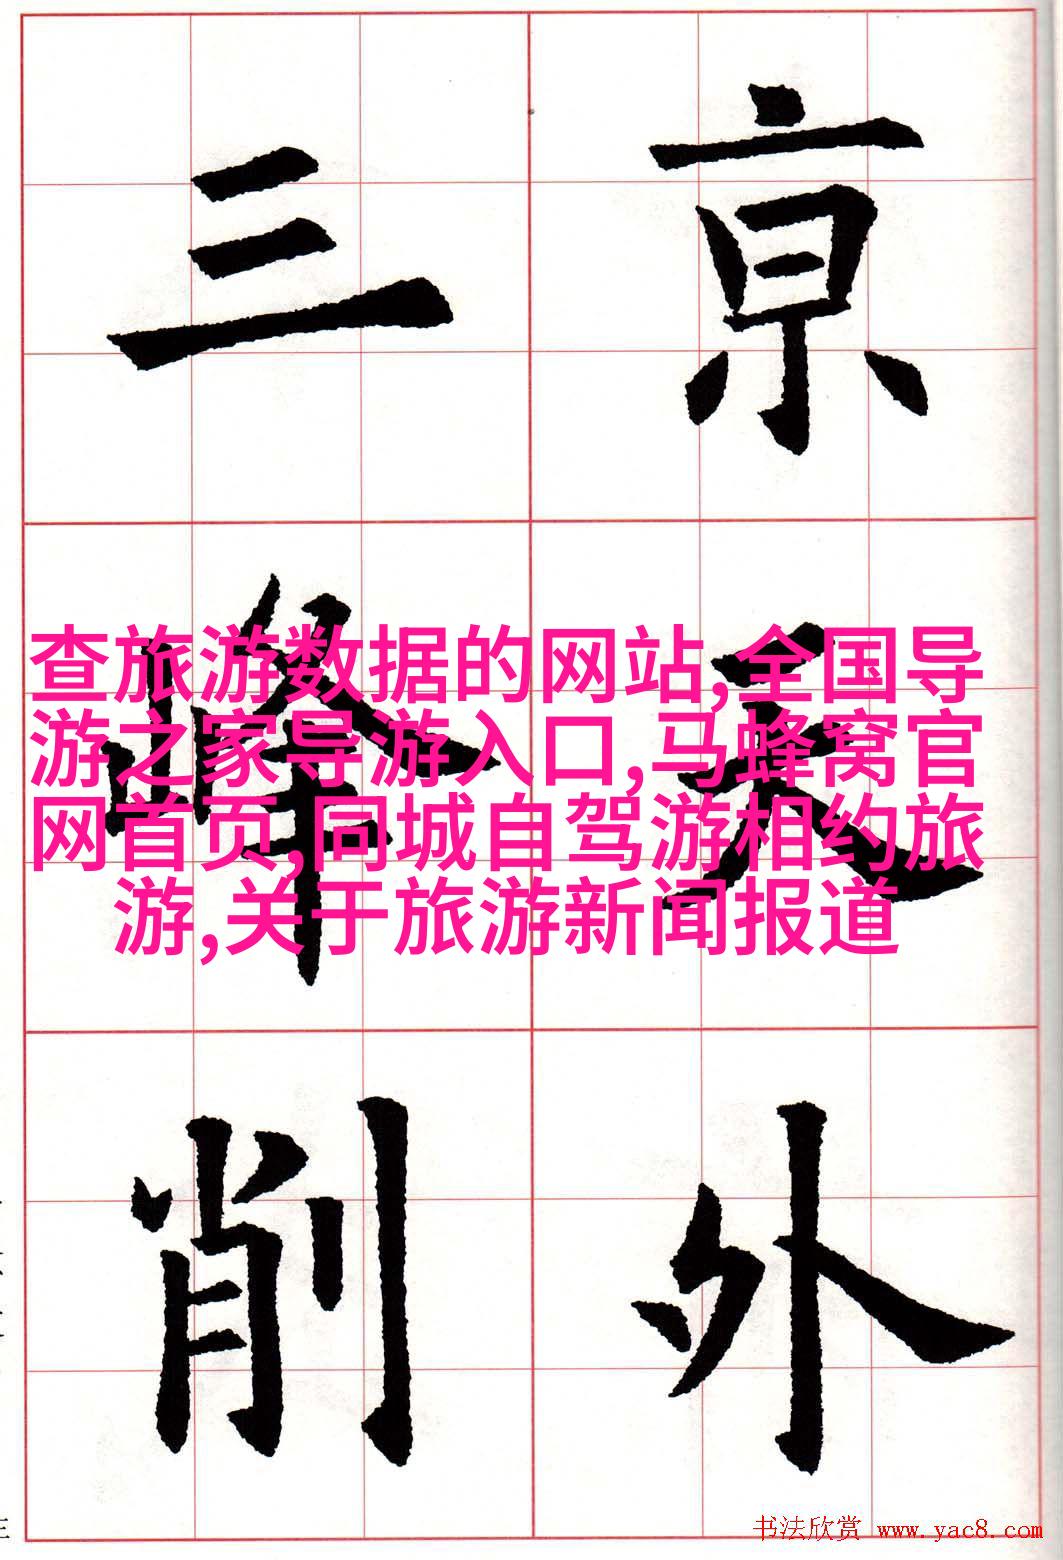 亰天外
三峰削
查旅游数据的网站,全国导
游之家导游入口,马蜂窝官
网首页,同城自驾游相约旅
游,关于旅游新闻报道
书法欣赏 www.yac8.com